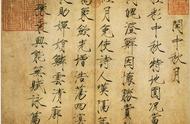 閏中秋月
桂彩中秋特地圓況當
餘閏魄澄鮮因懷勝賞
初經月免使詩人嘆隔年萬
象斂光增浩蕩四溟收
夜助嬋娟鱗雲清廓心田
豫乘興能無賦詠篇